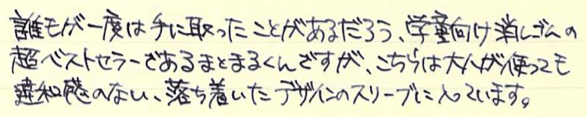 誰もが一度は手に取ったことがあるだろう、学童向け消しゴムの
超ベストセラーであるまとまるくんですが、こちらは大人が使っても
違和感のない、落ち着いたデザインのスリーブに入っています。